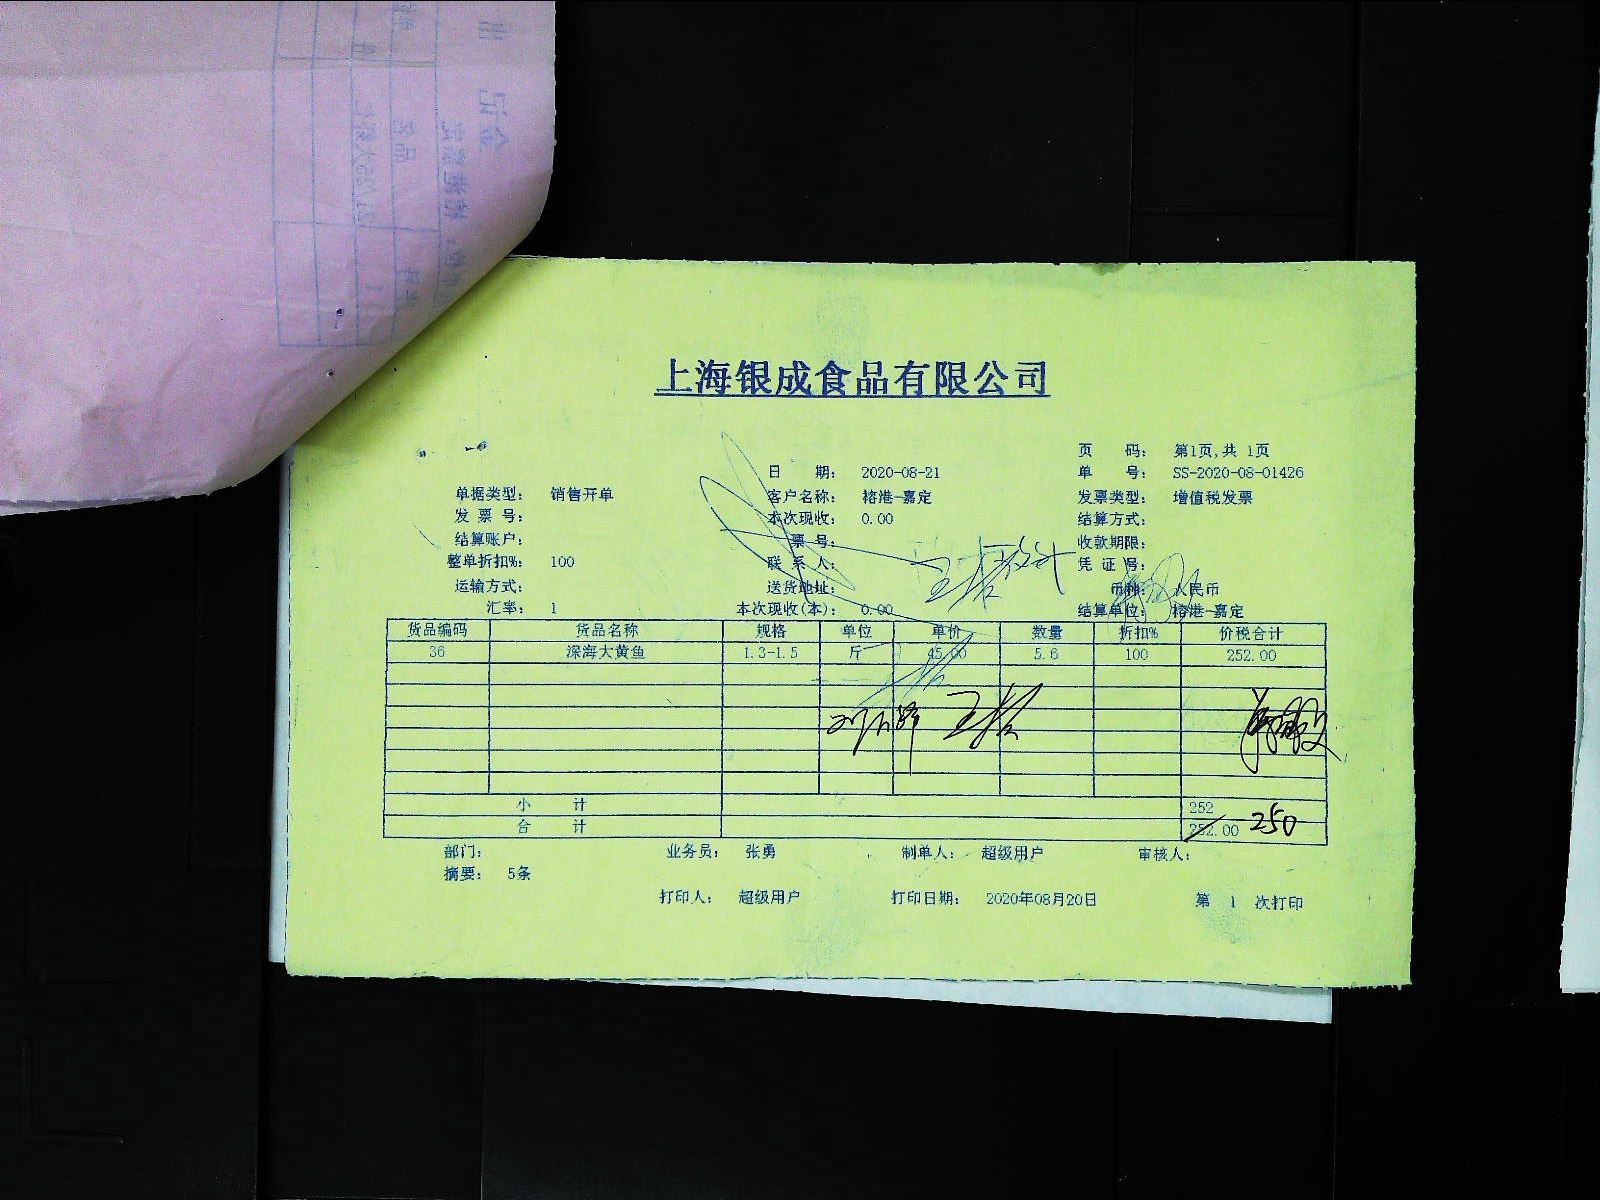 上海银成食品有限公司
页 码： 第1页,共 1页
日 期： 2020-08-21 单 号： SS-2020-08-01426
单据类型： 销售开单 客户名称： 榕港-嘉定 发票类型： 增值税发票
发 票 号： 本次现收： 0.00 结算方式：
结算账户： 票 号： 收款期限：
整单折扣%： 100 联 系 人： 凭 证 号：
运输方式： 送货地址： 币种： 人民币
汇率： 1 本次现收(本)： 0.00 结算单位： 榕港-嘉定
货品编码 货品名称 规格 单位 单价 数量 折扣% 价税合计
36 深海大黄鱼 1.3-1.5 斤 45.00 5.6 100 252.00
小 计 252
合 计 252.00 250
部门： 业务员： 张勇 制单人： 超级用户 审核人：
摘要： 5条
打印人： 超级用户 打印日期： 2020年08月20日 第 1 次打印